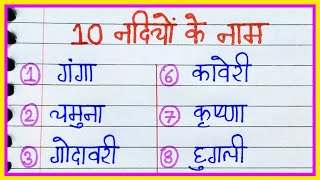 10 नदियों के नाम
① गंगा
② यमुना
③ गोदावरी
⑥ कावेरी
⑦ कृष्णा
⑧ हुगली